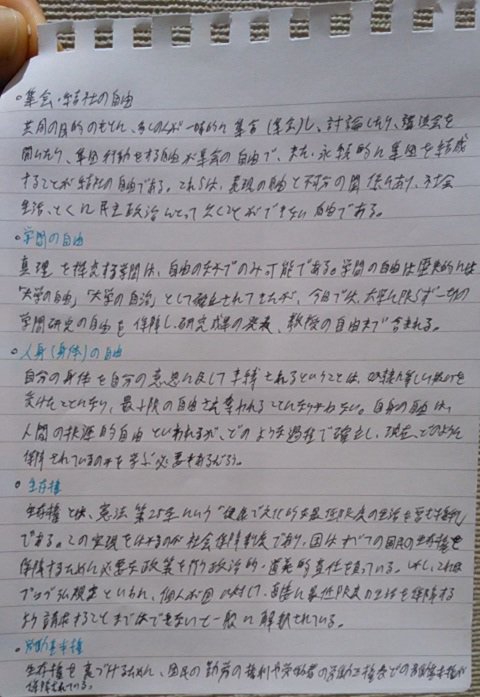 ○集会・結社の自由
共同の目的のもとに、多くの人が一時的に集合(集会)し、討論したり、講演会を
開いたり、集団行動をする自由が集会の自由で、また、永続的に集団を結成
することが結社の自由である。これらは、表現の自由と不可分の関係にあり、社会
生活、とくに民主政治にとって欠くことができない自由である。
○学問の自由
真理を探究する学問は、自由の下でのみ可能である。学問の自由は歴史的には
"大学の自由"、"大学の自治"として確立されてきたが、今日では、大学に限らず一切の
学問研究の自由を保障し、研究成果の発表、教授の自由まで含まれる。
○人身(身体)の自由
自分の身体を自分の意思に反して束縛されるということは、奴隷に等しい扱いを
受けたことになり、最小限の自由さえ奪われることになりかねない。自身の自由は、
人間の根源的自由といわれるが、どのような過程で確立し、現在、どのように
保障されているのかを学ぶ必要があるだろう。
○生存権
生存権とは、憲法第25条にいう"健康で文化的な最低限度の生活を営む権利"
である。この実現をはかるのが社会保障制度であり、国はすべての国民の生存権を
保障するために必要な政策を行う政治的・道義的責任を負っている。しかしこれは
プログラム規定といわれ、個人が国に対して、直接に最低限度の生活を保障する
よう請求することまではできないと一般に解釈されている。
○労働基本権
生存権を裏づけるために、国民の勤労の権利や労働者の労働三権などの労働基本権が
保障されている。